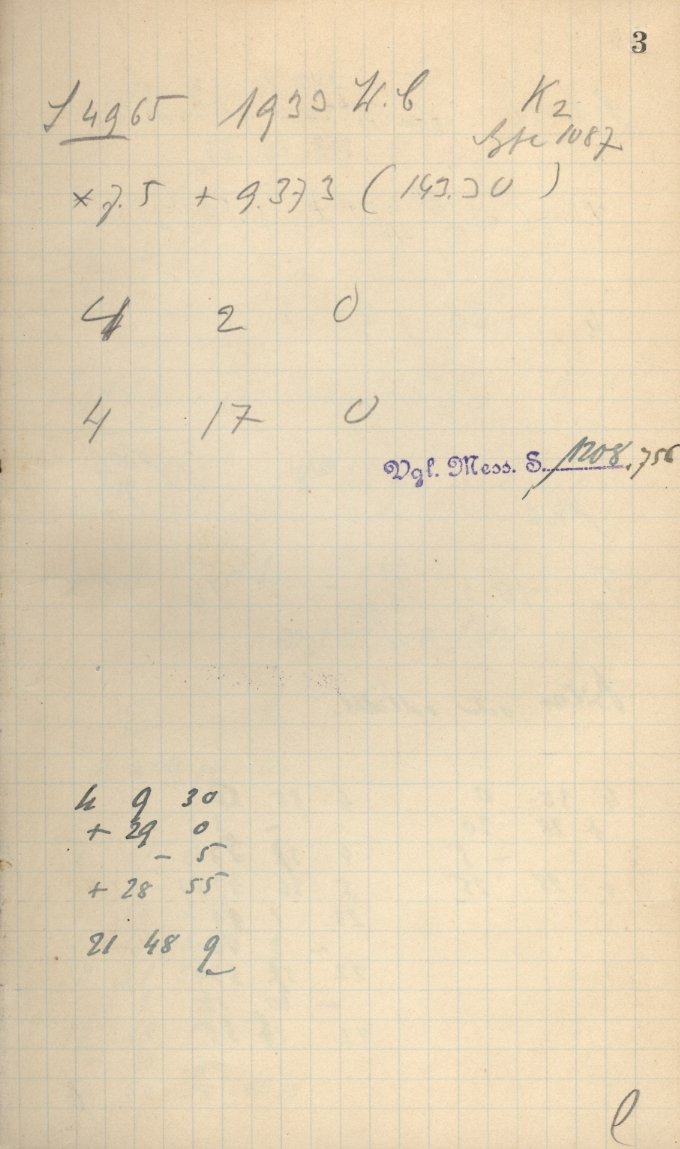 3
J 4965 1933 W.b K2
1087
*7.5 + 9.373 (143.30)
4 2 0
4 17 0
Vgl. Mess. S. 1208, 756
4 9 30
+ 29 0
- 5
+ 28 55
21 48 9
l